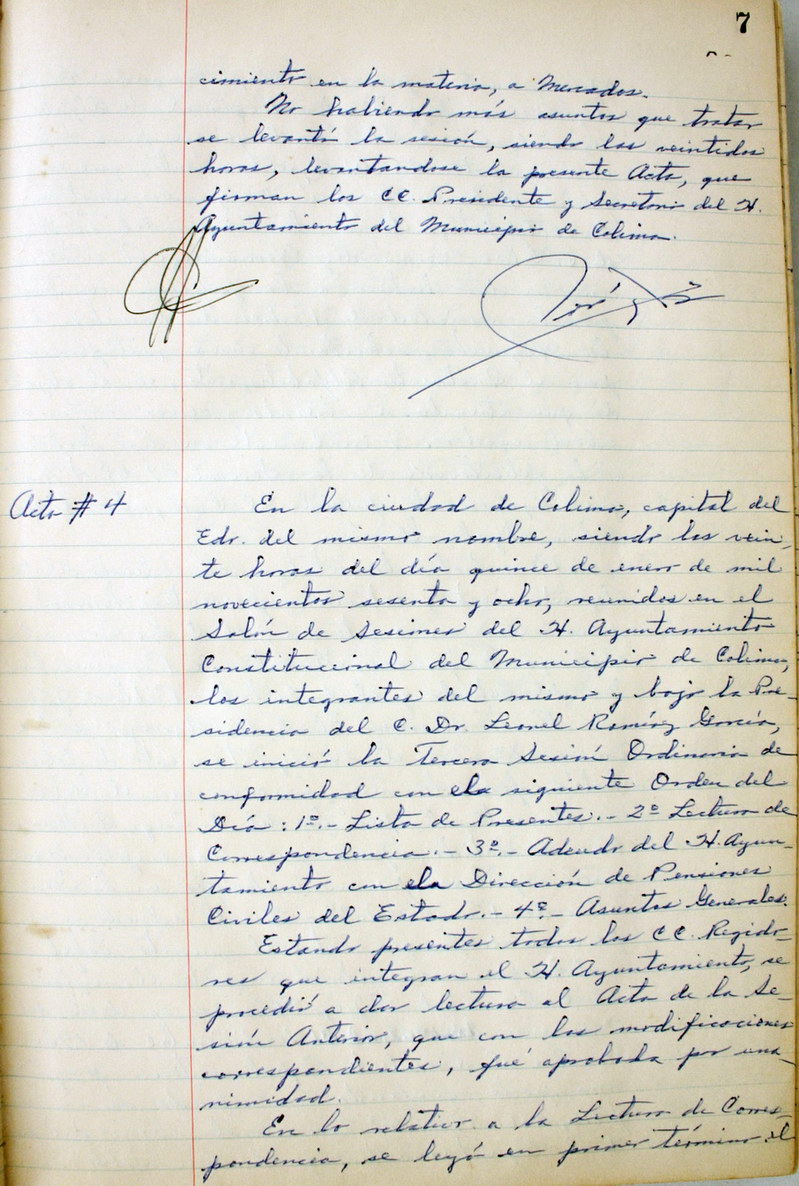 7
cimiento en la materia, a Mercados.
No habiendo más asuntos que tratar
se levantó la sesión, siendo las veintidos
horas, levantandose la presente Acta, que
firman los CC. Presidente y Secretario del H.
Ayuntamiento del Municipio de Colima.
Acta # 4
En la ciudad de Colima, capital del
Edo. del mismo nombre, siendo las vein-
te horas del día quince de enero de mil
novecientos sesenta y ocho, reunidos en el
Salón de Sesiones del H. Ayuntamiento
Constitucional del Municipio de Colima,
los integrantes del mismo y bajo la Pre-
sidencia del C. Dr. Leonel Ramírez García,
se inició la Tercera Sesión Ordinaria de
conformidad con el siguiente Orden del
Día : 1º.- Lista de Presentes.- 2º Lectura de
Correspondencia.- 3º.- Adeudo del H. Ayun-
tamiento con la Dirección de Pensiones
Civiles del Estado.- 4º.- Asuntos Generales.
Estando presentes todos los CC. Regido-
res que integran el H. Ayuntamiento, se
procedió a dar lectura al Acta de la Se-
sión Anterior, que con las modificaciones
correspondientes, fué aprobada por una-
nimidad.
En lo relativo a la Lectura de Corres-
pondencia, se leyó en primer término el